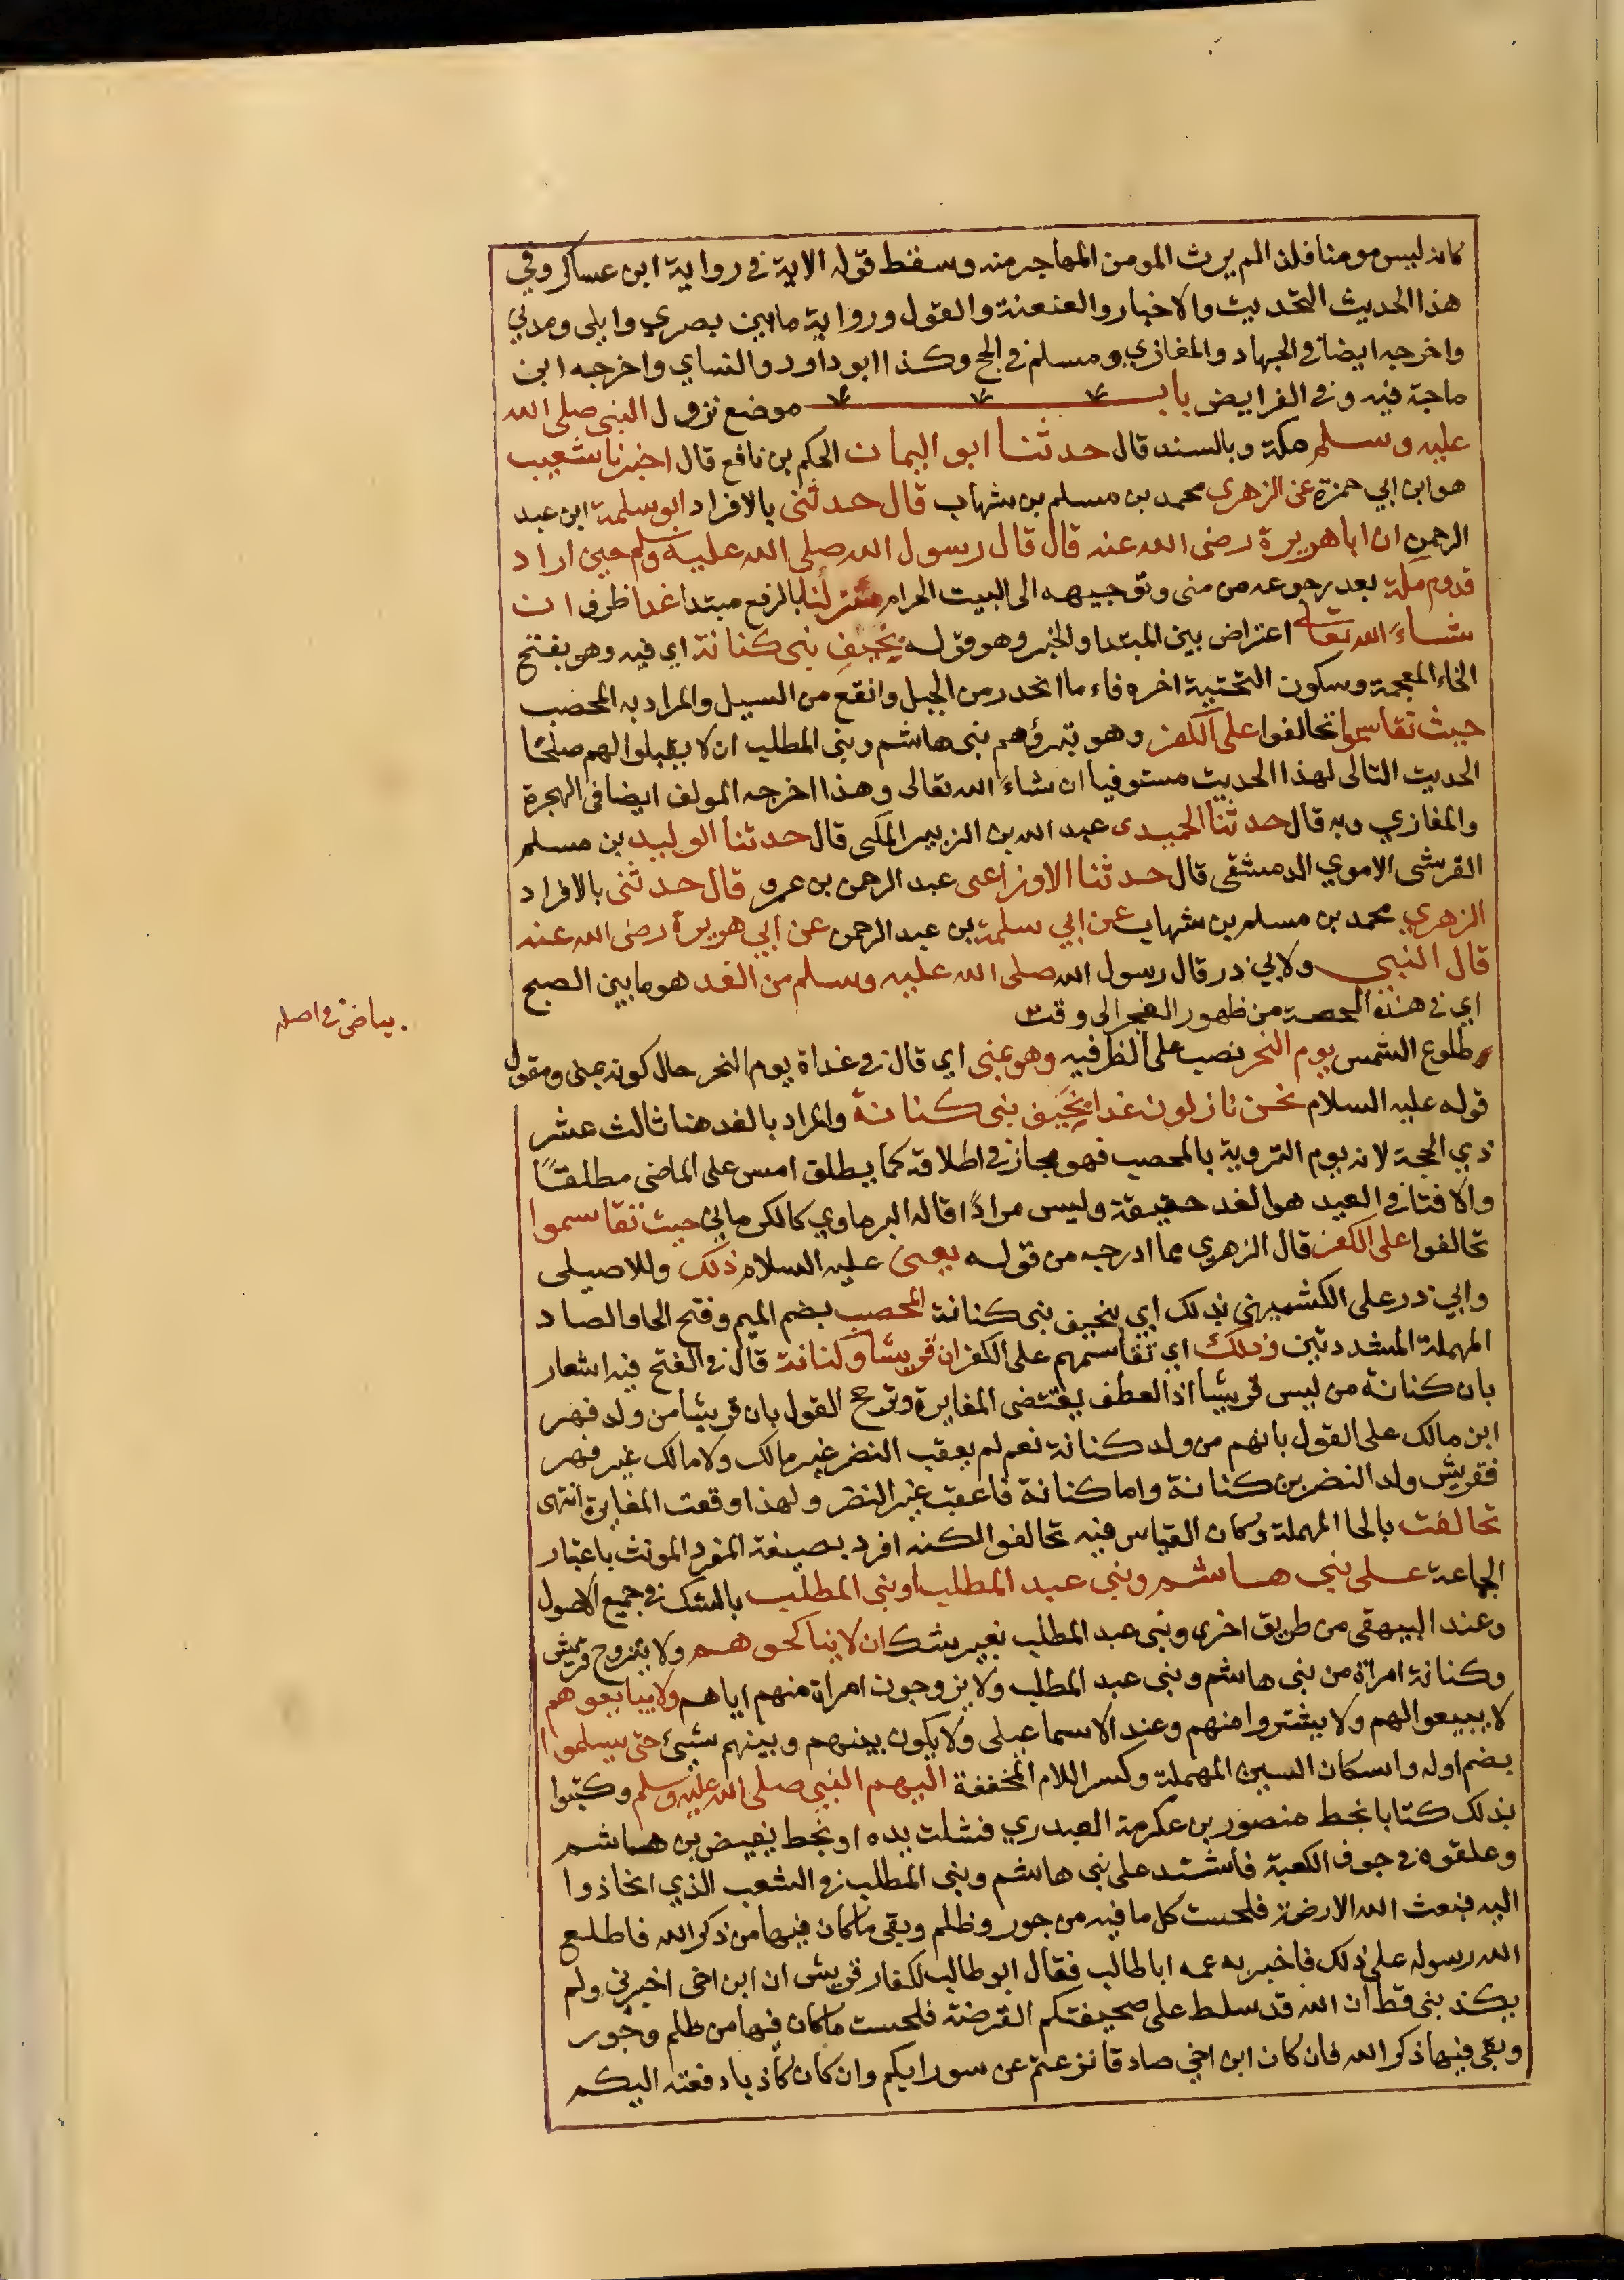 كانه ليس مومنا فلذا لم يرث المومن المهاجر منه وسقط قوله الاية في رواية ابن عساكر وفي
هذا الحديث التحديث والاخبار والعنعنة والقول وروايته مابين بصري وايلى ومدني
واخرجه ايضا في الجهاد والمغازي ومسلم في الحج وكذا ابو داود والنساي واخرجه ابن
ماجة فيه وفي الفرايض باب موضع نزول النبي صلى الله
عليه وسلم مكة وبالسند قال حدثنا ابو اليمان الحكم بن نافع قال اخبرنا شعيب
هو ابن ابي حمزة عن الزهري محمد بن مسلم بن شهاب قال حدثنى بالافراد ابو سلمة ابن عبد
الرحمن ان ابا هريرة رضى الله عنه قال قال رسول الله صلى الله عليه وسلم حين اراد
قدوم مكة بعد رجوعه من منى وتوجيهه الى البيت الحرام منزلنا بالرفع مبتدا غدا ظرف ان
شاءَ الله تعالى اعتراض بين المبتدا والخبر وهو قوله بخيفِ بنى كنانة اي فيه وهو بفتح
الخاء المعجمة وسكون التحتية اخره فاء ما انحدر من الجبل وانقع من السيل والمراد به المحصب
حيث تقاسموا تحالفوا على الكفر وهو تبرؤهم بنى هاشم وبنى المطلب ان لا يقبلوا لهم صلحًا
الحديث التالى لهذا الحديث مستوفيا ان شاءَ الله تعالى وهذا اخرجه المولف ايضا فى الهجرة
والمغازي وبه قال حدثنا الحميدى عبد الله بن الزبير المكى قال حدثنا الوليد بن مسلم
القرشى الاموي الدمشقى قال حدثنا الاوزاعى عبد الرحمن بن عمرو قال حدثنى بالافراد
الزهري محمد بن مسلم بن شهاب عن ابي سلمة بن عبد الرحمن عن ابي هريرة رضى الله عنه
قال النبي ولابي ذر قال رسول الله صلى الله عليه وسلم من الغد هو مابين الصبح
اي في هذه من ظهور الفجر الى وقت
. بياض في اصله
وطلوع الشمس يوم النحر نصب على الظرفيه وهو بمنى اي قال في غداة يوم النحر حال كونه بمنى ومقول
قوله عليه السلام نحن نازلون غدا بخَيف بنى كنانة والمراد بالغد هنا ثالث عشر
ذي الحجة لانه يوم التروية بالمحصب فهو مجاز في اطلاقه كما يطلق امس على الماضى مطلقًا
والا فتاني العيد هو الغد حقيقة وليس مرادًا قاله البرماوي كالكرماني حيث تقاسموا
تحالفوا على الكفر قال الزهري مما ادرجه من قوله يعنى عليه السلام ذلك وللاصيلى
وابي ذر على الكشميهني بذلك اي بخيف بنى كنانة المحصب بضم الميم وفتح الحا والصاد
المهملة المشددتين وذلك اي تقاسمهم على الكفر ان قريشا وكنانة قال في الفتح فيه اشعار
بان كنانة من ليس قريشا اذ العطف يقتضى المغايرة وترجح القول بان قريشا من ولد فهر
ابن مالك على القول بانهم من ولد كنانة نعم لم يعقب النضر غير مالك ولا مالك غير فهر
فقريش ولد النضر بن كنانة واما كنانة فاعقب غير النضر ولهذا وقعت المغايرة انتهى
تحالفت بالحا المهملة وكان القياس فيه تحالفوا لكنه افرد بصيغة المفرد المونث باعتبار
الجماعة على بني هاشم وبني عبد المطلب او بني المطلب بالشك في جميع الاصول
وعند البيهقى من طريق اخرى وبنى عبد المطلب بغير شك ان لا يناكحوهم ولا يتزوج قريش
وكنانة امراة من بنى هاشم وبنى عبد المطلب ولا يزوجون امراة منهم اياهم ولا يبايعوهم
لا يبيعوا لهم ولا يشتروا منهم وعند الاسماعيلى ولا يكون بينهم وبينهم شيئ حتى يسلموا
بضم اوله واسكان السين المهملة وكسر اللام المخففة اليهم النبي صلى الله عليه وسلم وكتبوا
بذلك كتابا بخط منصور بن عكرمة العبدري فشلت يده او بخط بغيض بن هاشم
وعلقوه في جوف الكعبة فاشتد على بني هاشم وبني المطلب في الشعب الذي انحازوا
اليه فبعث الله الارضة فلحست كل ما فيه من جور وظلم وبقى ما كان فيها من ذكر الله فاطلع
الله رسوله على ذلك فاخبر به عمه ابا طالب فقال ابو طالب لكفار قريش ان ابن اخى اخبرني ولم
يكذبنى قط ان الله قد سلط على صحيفتكم القرضة فلحست ما كان فيها من ظلم وجور
وبقى فيها ذكر الله فان كان ابن اخي صادقا نزعتم عن سو رايكم وان كان كاذبا دفعته اليكم